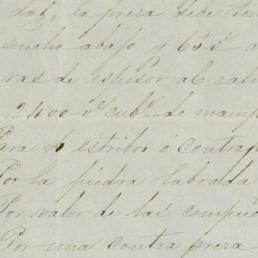 dad, la presa debe ten
ancho abajo y 6½ v.s a
ras de espesor al cali
2400 v.s cub.s de mamp
Para 4 estribos ó contraf
Por la piedra labrada
Por valor de las compue
Por una contra presa